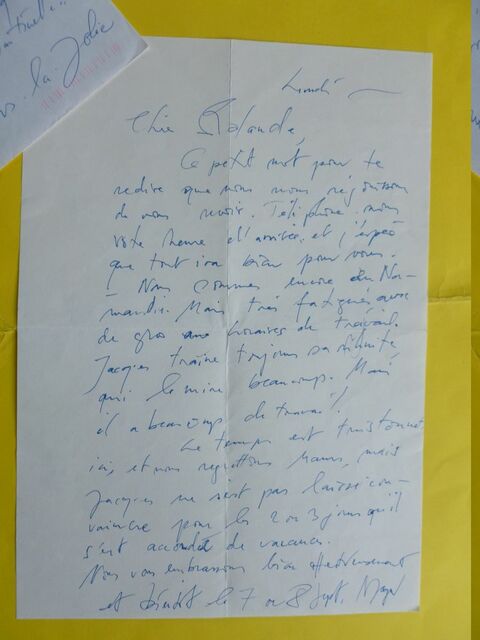 la Jolie
Lundi
Chère Rolande,
Ce petit mot pour te
redire que nous nous réjouissons
de vous revoir. Téléphone-nous
votre heure d'arrivée, et j'espère
que tout ira bien pour vous.
- Nous sommes encore en Nor-
- mandie. Mais très fatigués avec
de gros horaires de travail.
Jacques traine toujours sa
qui le mine beaucoup. Mais
il a beaucoup de travail !
Le temps est tristounet
ici, et nous regrettons mais
Jacques ne s'est pas laissé con-
vaincre pour les 2 ou 3 jours qu'il
s'est accordé de vacances.
Nous vous embrassons bien affectueusement
et bientôt le 7 ou 8 Sept.